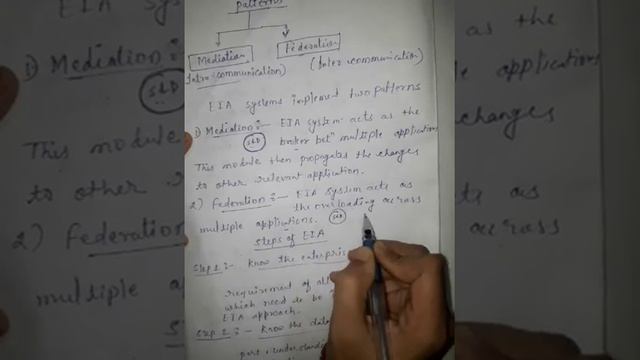 patterns
Mediation
Federation
(Intra-communication)
(Inter-communication)
EIA systems implement two patterns
1) Mediation:- EIA system acts as the
S&D
broker betn multiple applications
This module then propagates the changes
to other relevant application.
2) Federation:- EIA system acts as
the overloading across
multiple applications.
S&D
steps of EIA
Step 1:- Know the enterpris
requirement of
which need
EIA approach.
Step 2:- Know the data